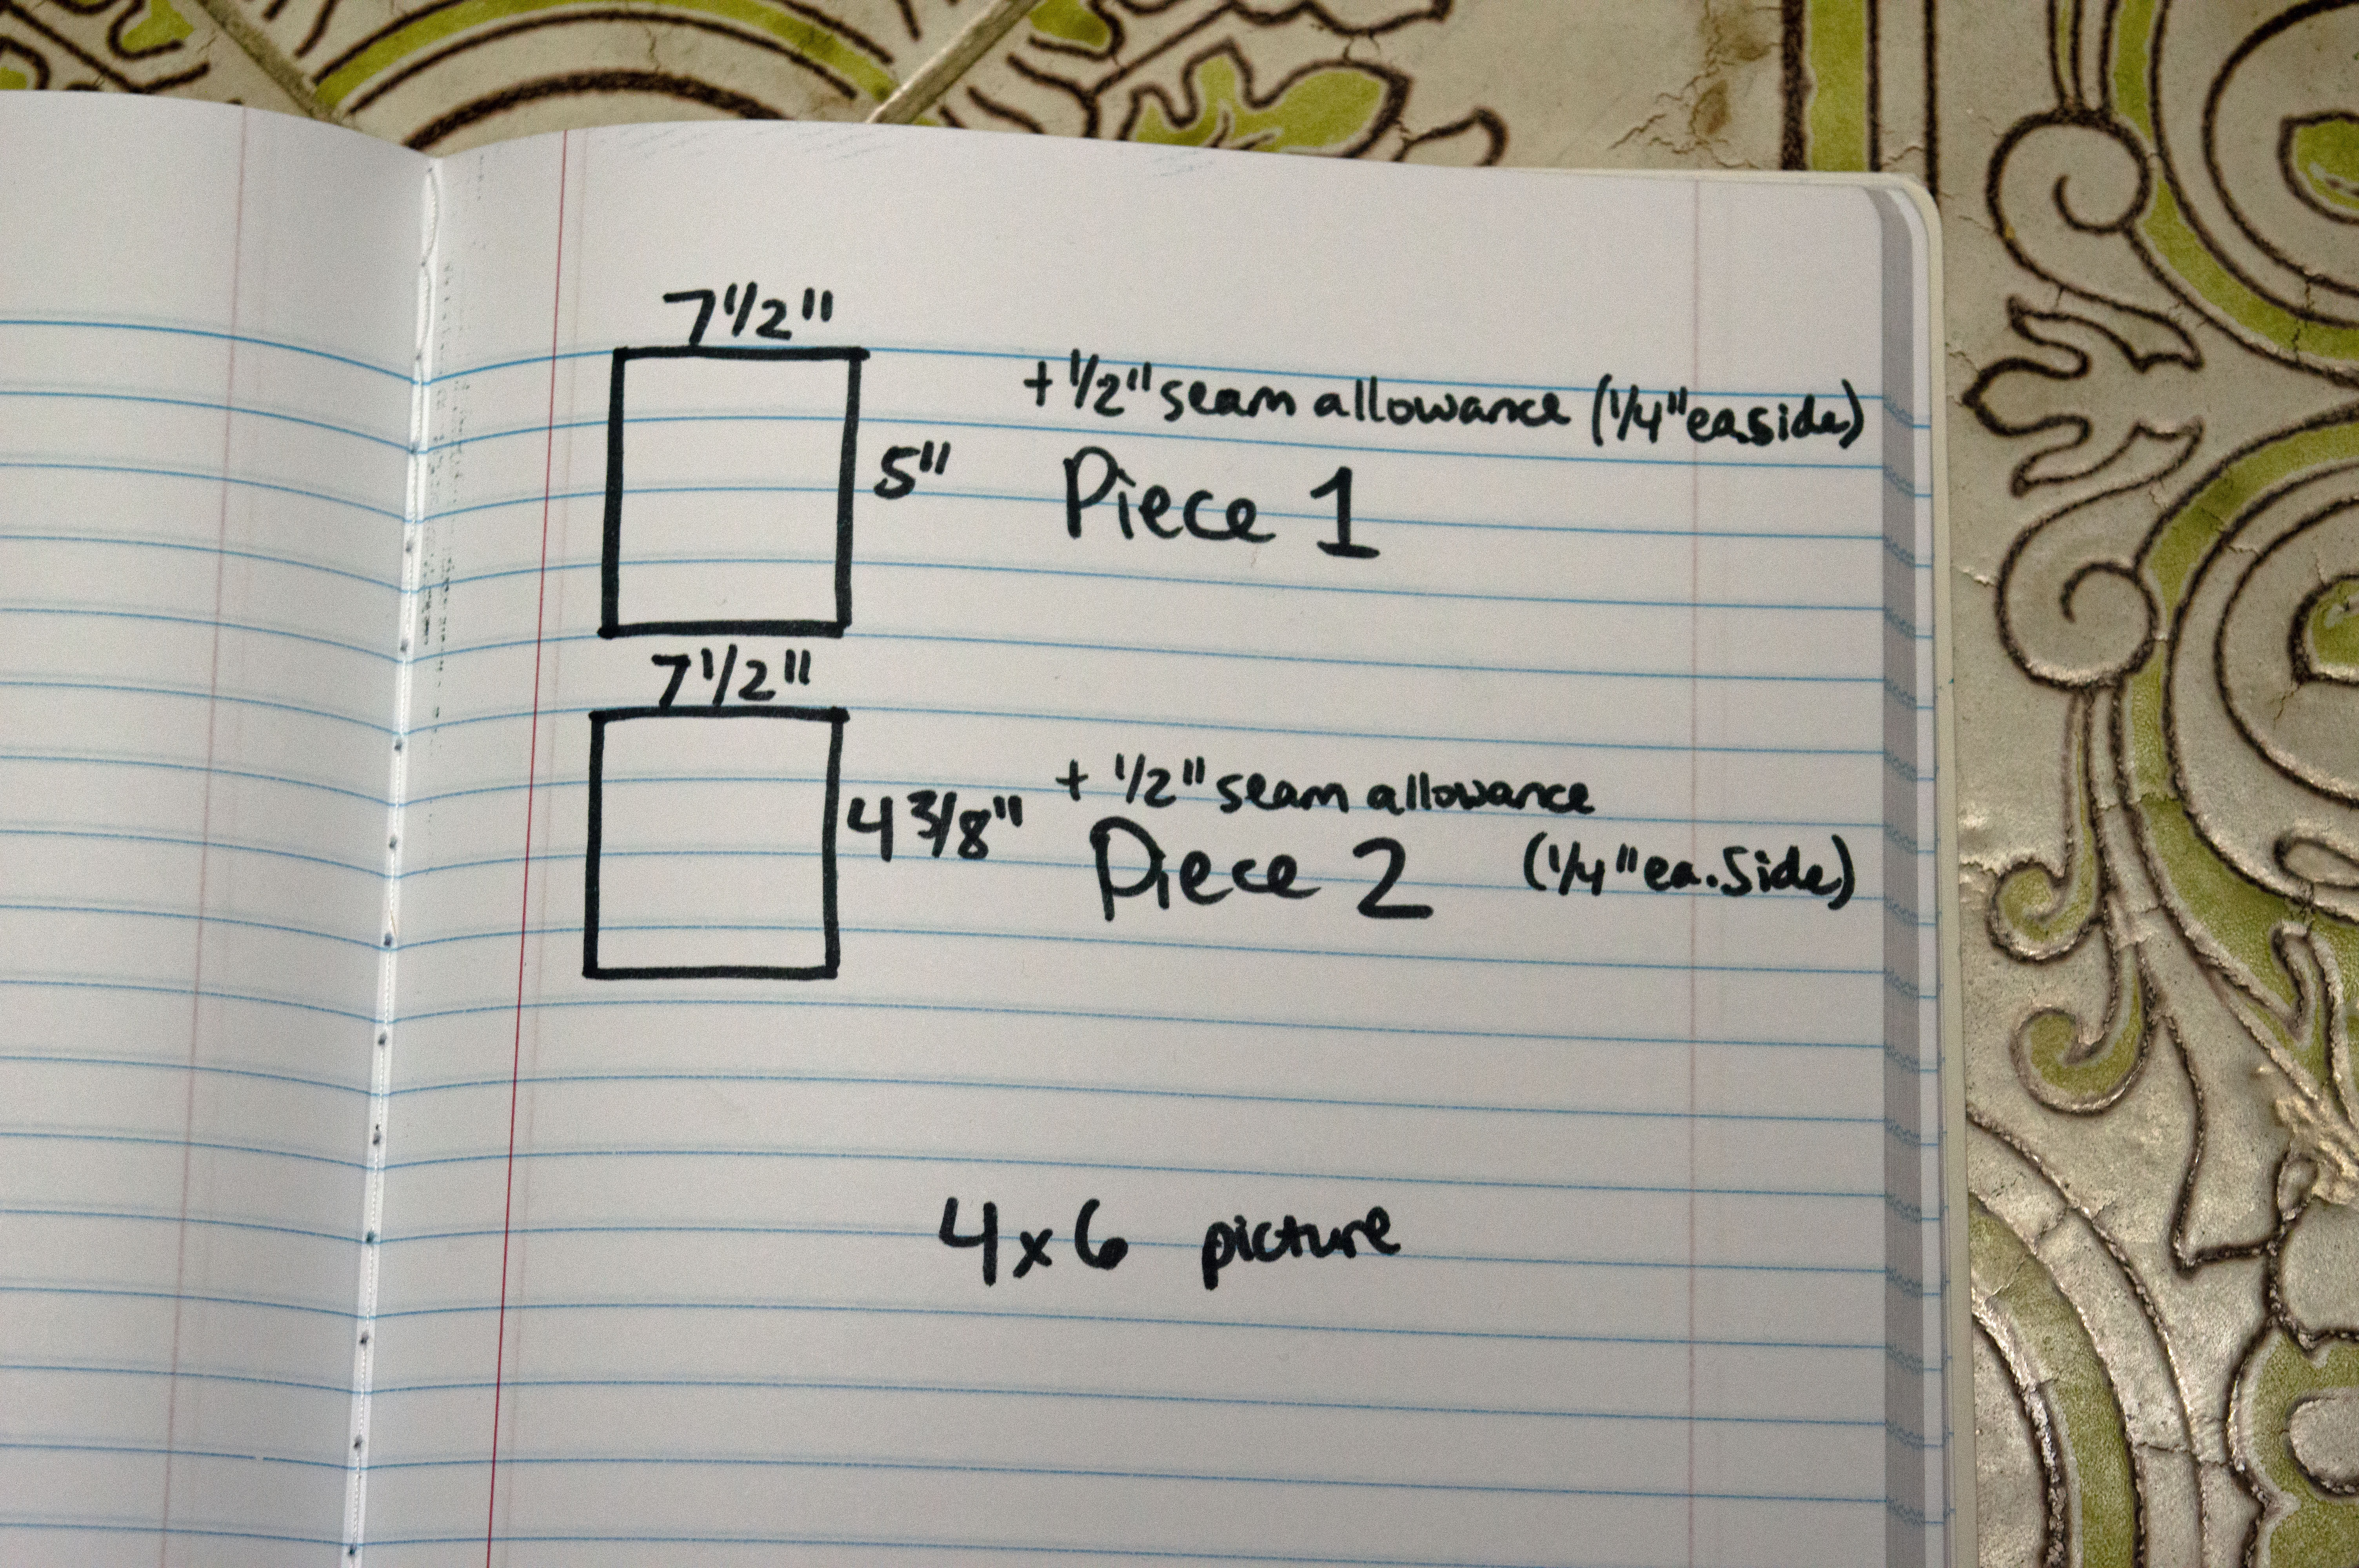 7 1/2"
+ 1/2" seam allowance (1/4" ea. side)
5" Piece 1
7 1/2"
+ 1/2" seam allowance
4 3/8" Piece 2 (1/4" ea. Side)
4x6 picture